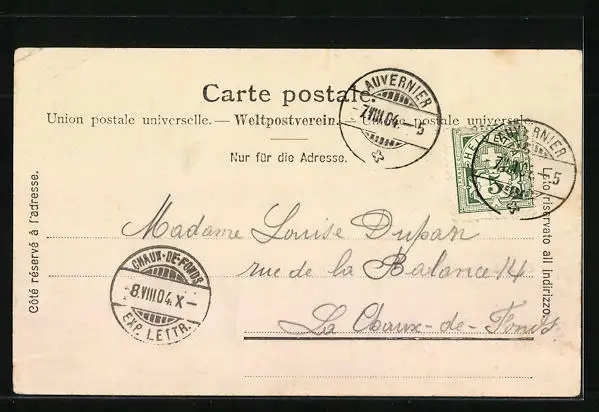 Carte postale.
Union postale universelle. — Weltpostverein. — postale universale.
Nur für die Adresse.
AUVERNIER
7.VIII.04.-5
AUVERNIER
-5
HELVETIA
5
Côté réservé à l'adresse.
lato riservato all indirizzo.
CHAUX-DE-FONDS
-8.VIII.04.X-
EXP. LETTR.
Madame Louise Dupan
rue de la Balance 14
La Chaux-de-Fonds